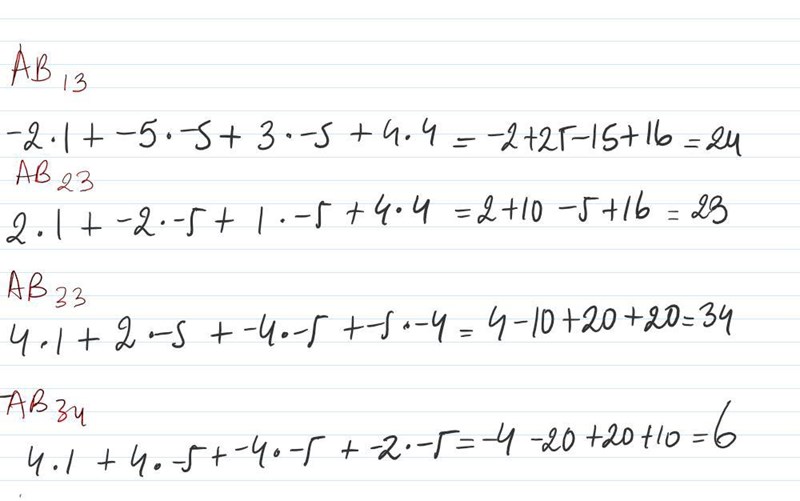 AB13
-2·1 + -5·-5 + 3·-5 + 4·4 = -2+25-15+16 = 24
AB23
2·1 + -2·-5 + 1·-5 + 4·4 = 2+10 -5+16 = 23
AB33
4·1 + 2·-5 + -4·-5 + -5·-4 = 4-10+20+20=34
AB34
4·1 + 4·-5 + -4·-5 + -2·-5 = -4 -20 +20+10 = 6